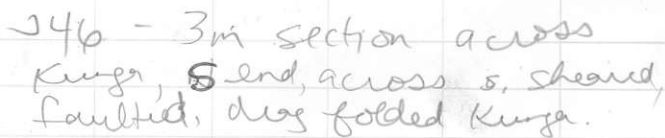 346 - 3m section across
Kunga, S end, across s, sheared,
faulted, drag folded Kunga.